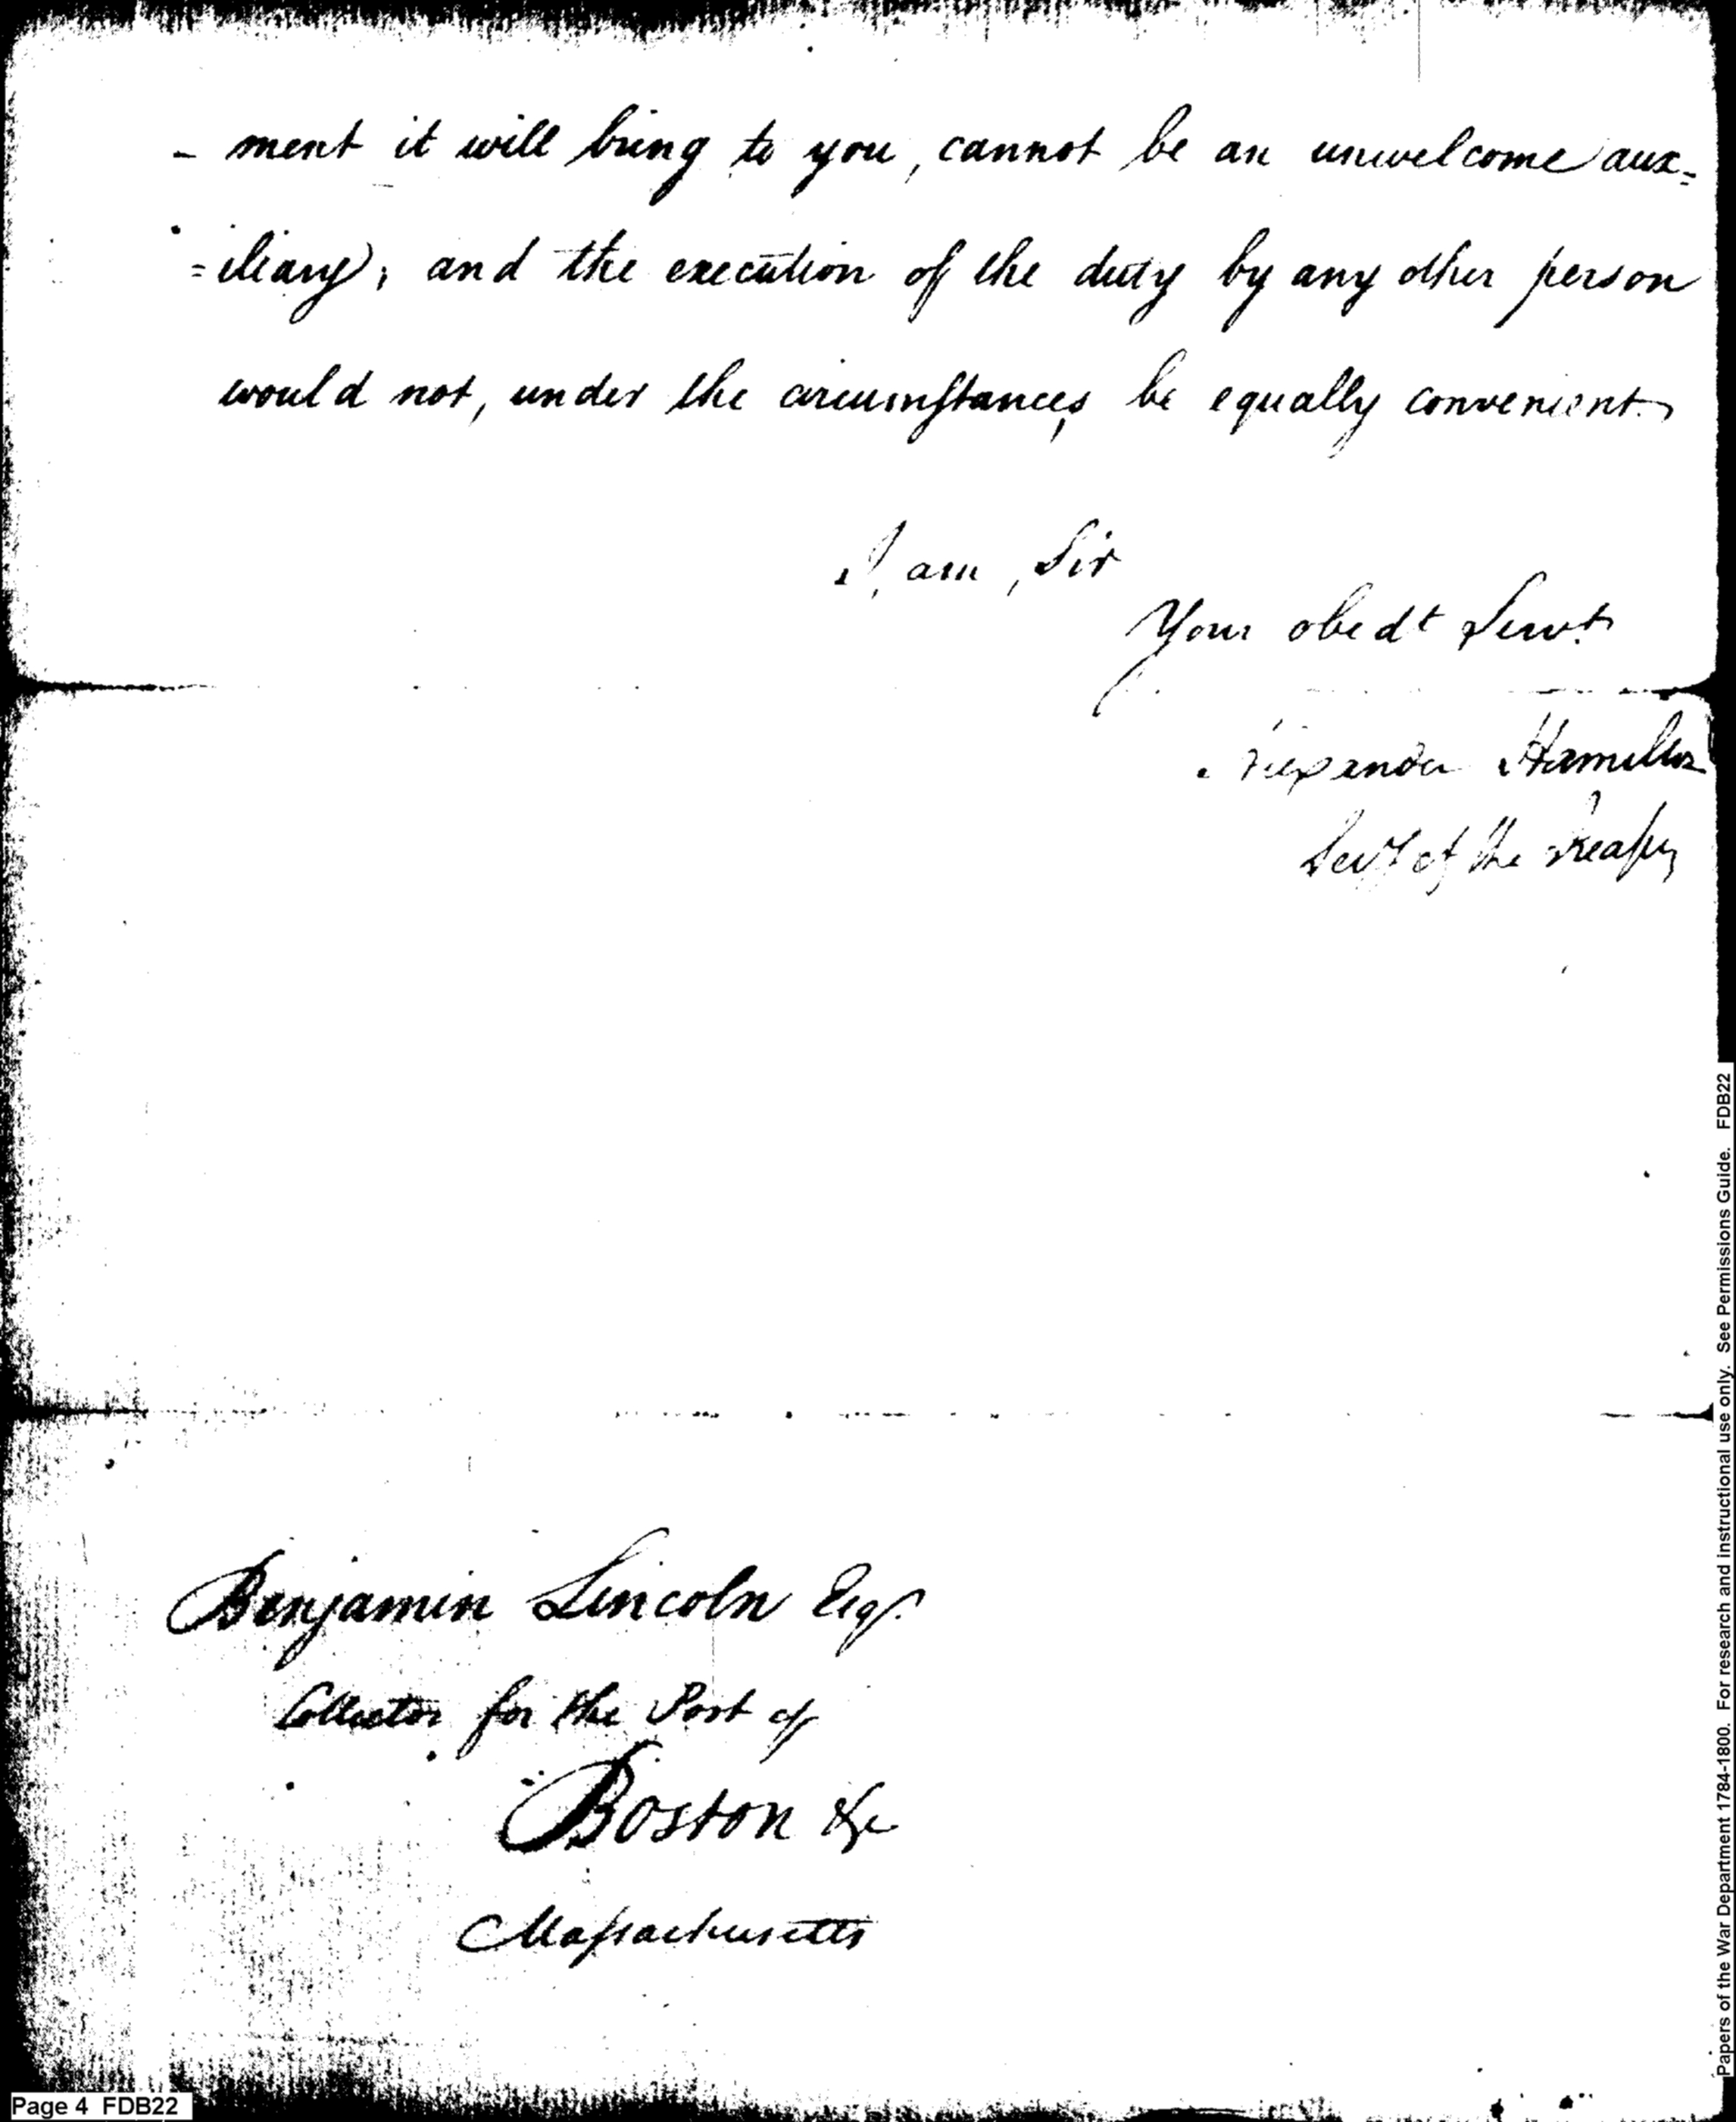 - ment it will bring to you, cannot be an unwelcome aux=
=iliary; and the execution of the duty by any other person
would not, under the circumstances, be equally convenient.
I, am, Sir
Your obedt Servt.
Alexander Hamilton
Secy of the Treasy
Benjamin Lincoln Esqr.
Collector for the Port of
Boston &c
Massachusetts
Page 4 FDB22
Papers of the War Department 1784-1800. For research and instructional use only. See Permissions Guide. FDB22